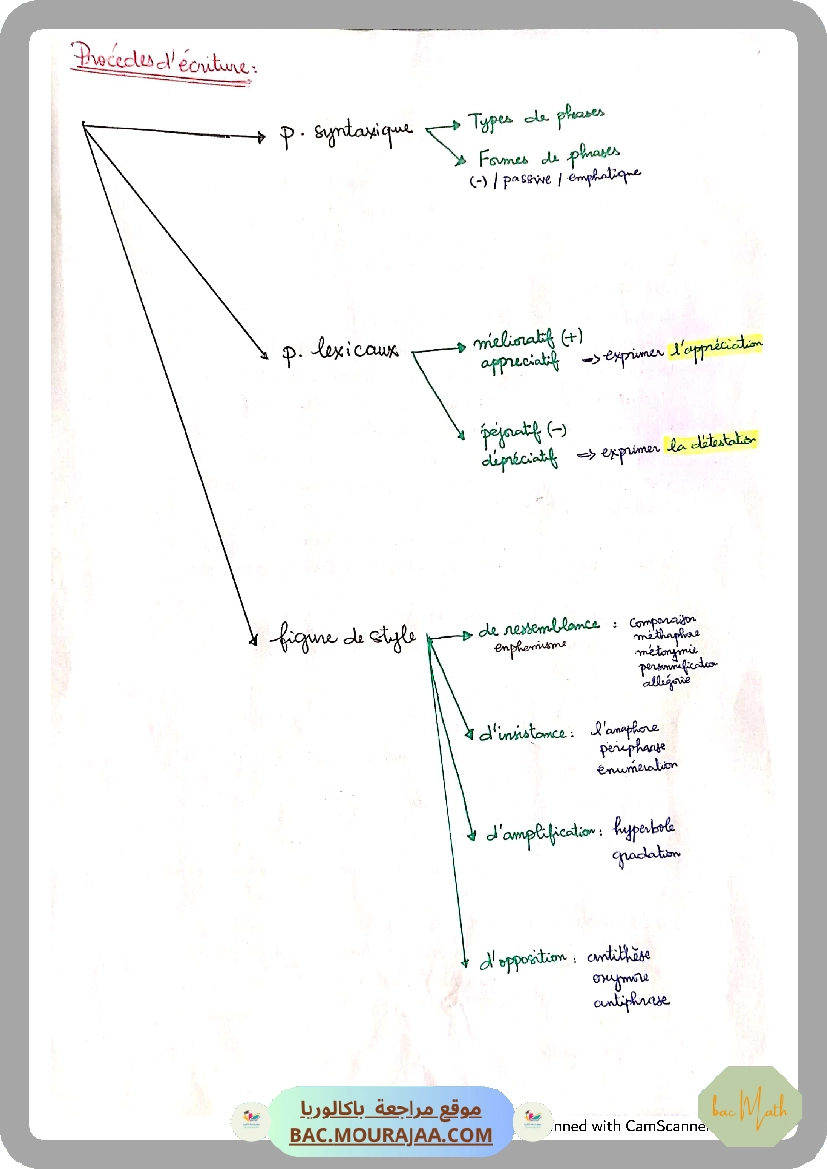 Procédes d'écriture :
p. syntaxique
Types de phrases
Formes de phrases
(-) / passive / emphatique
p. lexicaux
mélioratif (+)
appreciatif
=> exprimer l'appréciation
péjoratif (-)
dépréciatif
=> exprimer la détestation
figure de style
de ressemblance :
enphemisme
comparaison
méthaphore
métonymie
personnification
allégorie
d'insistance :
l'anaphore
periphrase
enumération
d'amplification :
hyperbole
gradation
d'opposition :
antithèse
oxymore
antiphrase
موقع مراجعة باكالوريا
BAC.MOURAJAA.COM
nned with CamScanner
bac Math